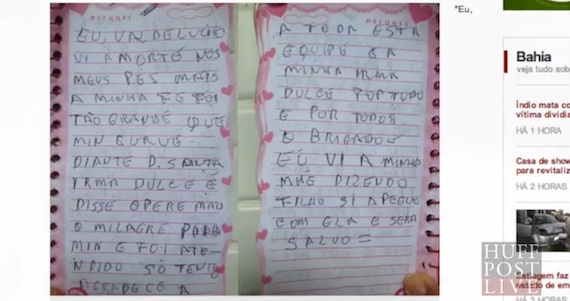 "Eu,
EU, VALDELUCIO
VI A MORTE NOS
MEUS PES MAIS
A MINHA FE FOI
TÃO GRANDE QUE
MIN CURVE
DIANTE D. SANTA
IRMA DULCE E
DISSE OPERE MAIS
O MILAGRE PARA
MIN E FOI ATE
NDIDO SÓ TENHO
AGRADECE A
A TODA ESTA
EQUIPE E A
MINHA IRMA
DULCE POR TUDO
E POR TODOS
O BRIGADO
EU VI A MINHA
MÃE DIZENDO
FILHO SI APEGUE
COM ELA E SERA
SALVO =
Bahia
veja tudo sob
Índio mata co
vítima dividia
HÁ 1 HORA
Casa de show
para revitaliz
HÁ 2 HORAS
Estiagem faz
estado de em
HUFF
POST
LIVE